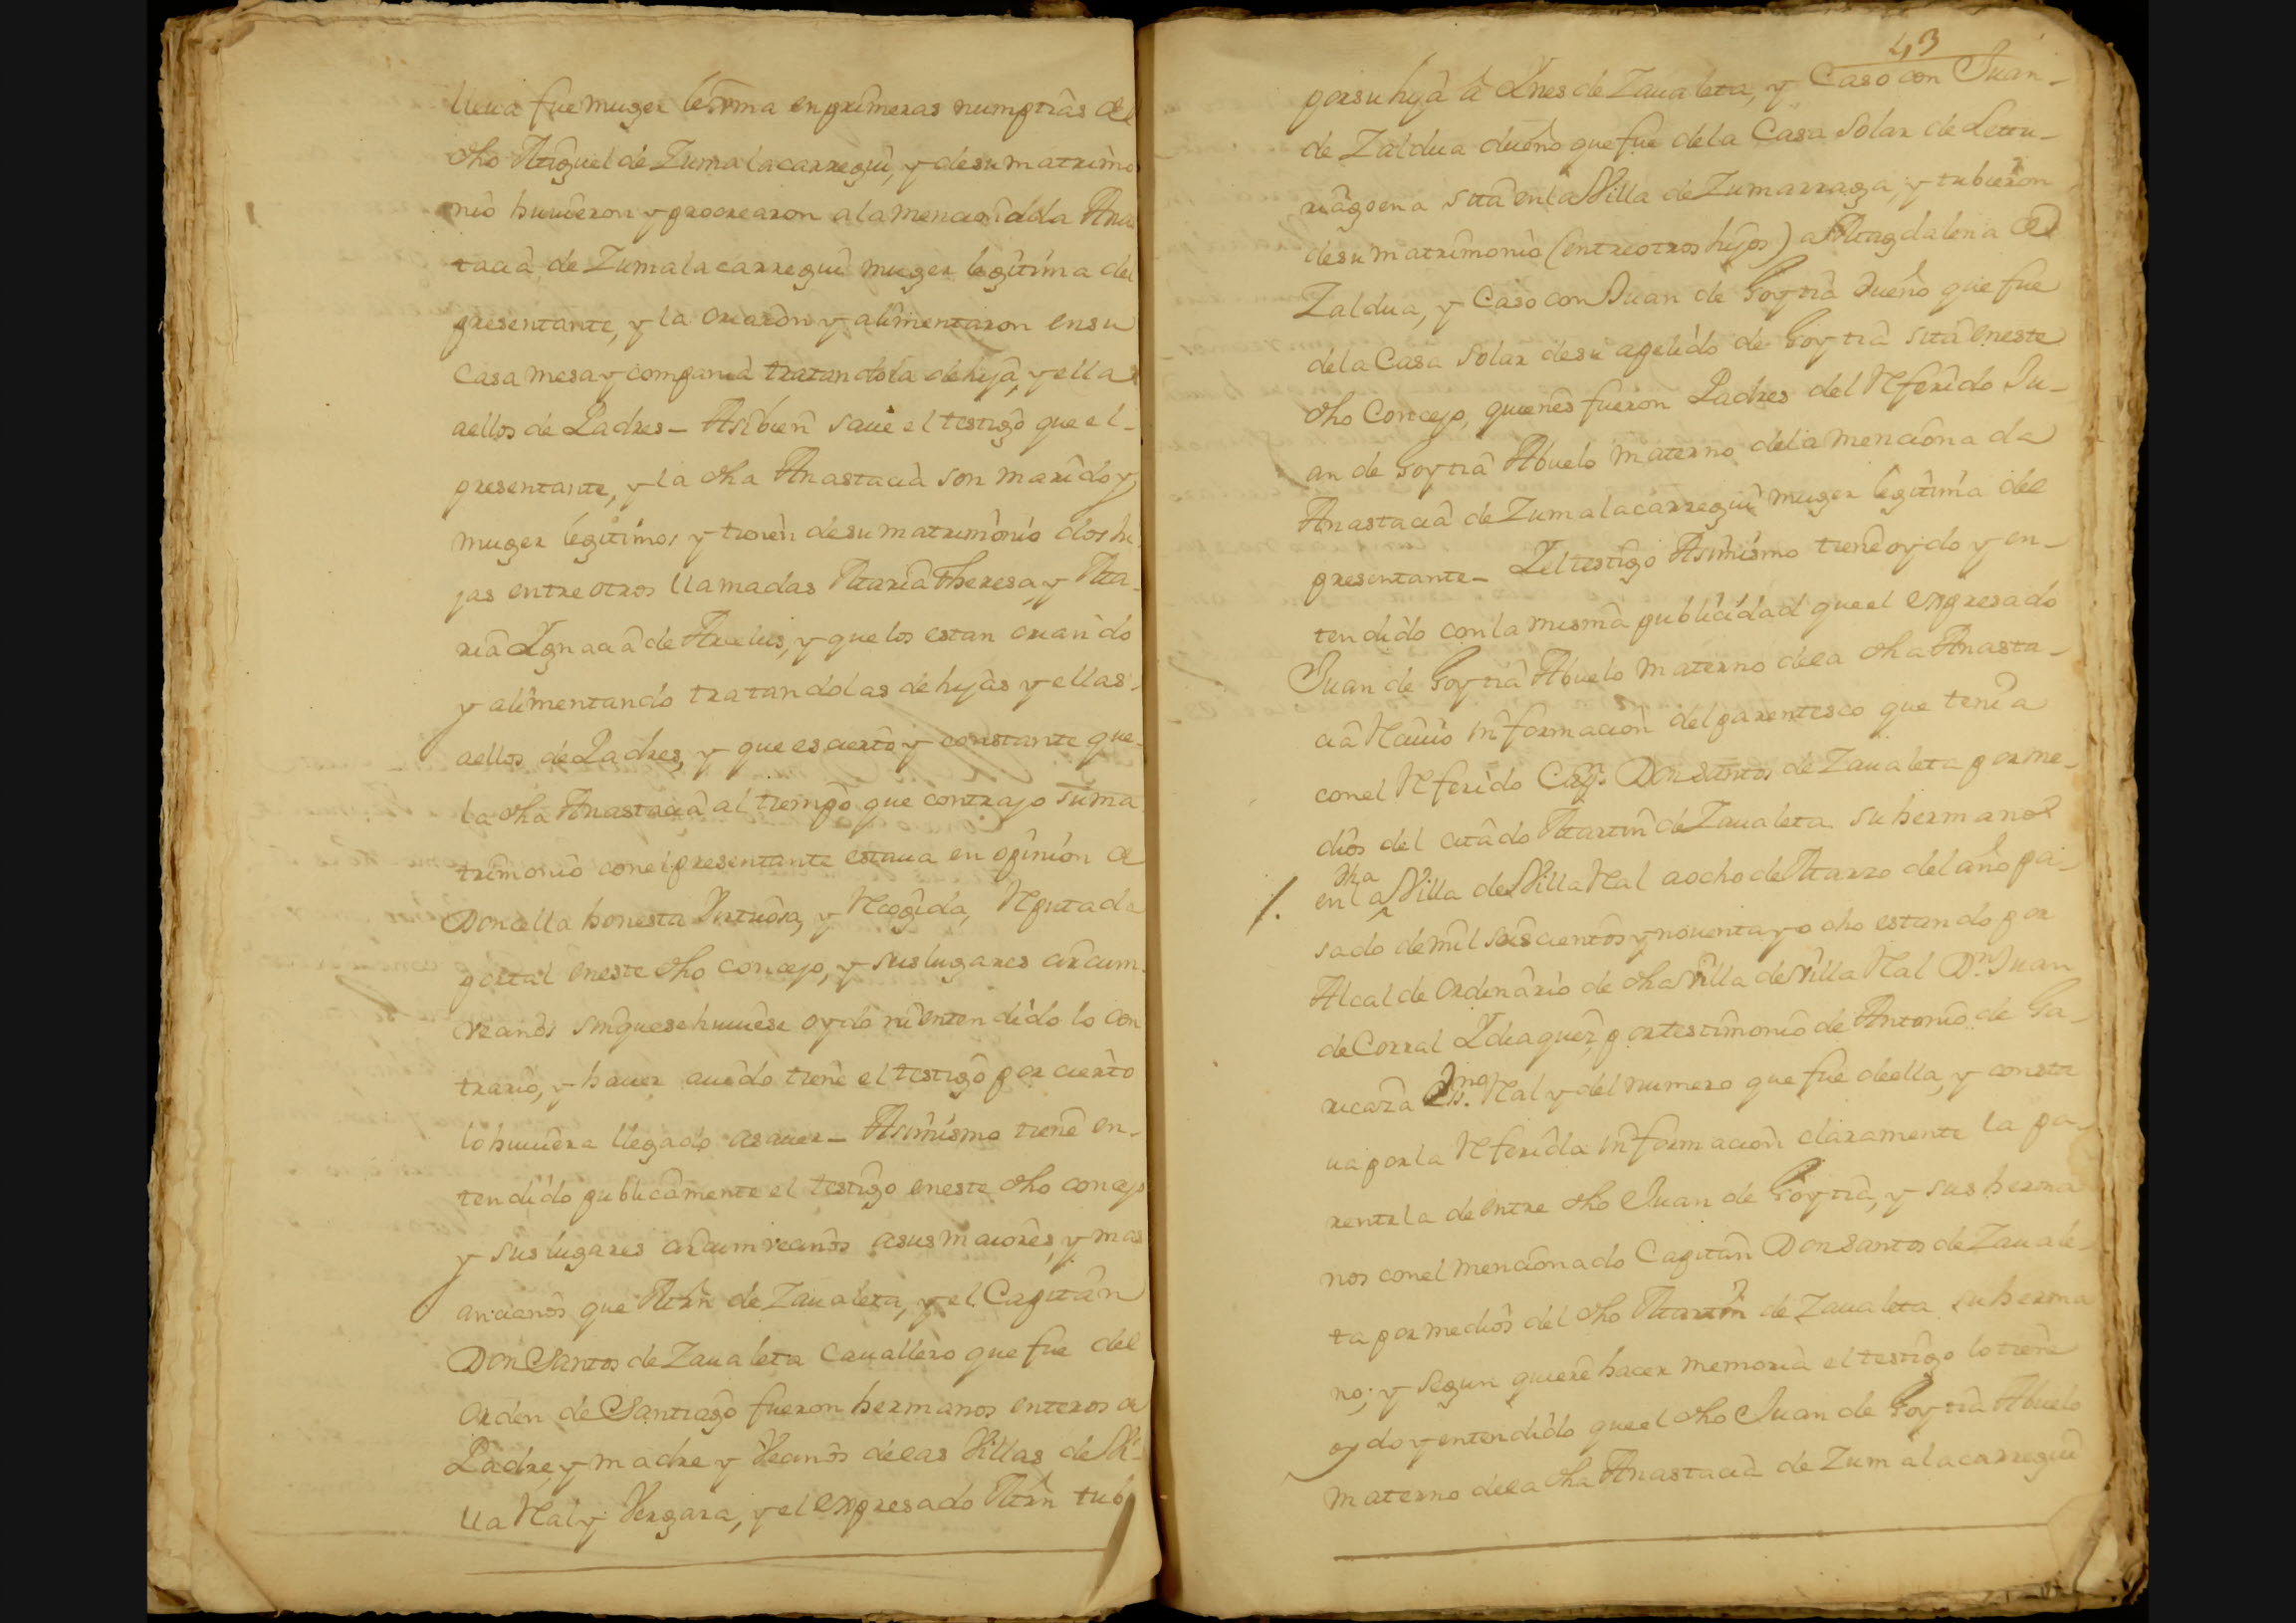 lleua fue muger lexma en primeras numptias de
dho Miguel de Zumalacarregui, y de su matrimo
nio huuieron y procrearon a la mencionada Anas
tacia de Zumalacarregui muger legitima del
presentante, y la criaron y alimentaron en su
Casa mesa y compania tratandola de hija, y ella
a ellos de Padres – Asibien saue el testigo que el –
presentante, y la dha Anastacia son marido y
muger legitimos y tienen de su matrimonio dos hi
jas entre otros llamadas Maria Theresa, y Ma –
ria Ignacia de Arcelus, y que los estan criando
y alimentando tratandolas de hijas y ellas –
a ellos de Padres, y que es cierto y constante que –
la dha Anastacia al tiempo que contrajo su ma
trimonio con el presentante estaua en opinion de
Doncella honesta Virtuosa, y Recogida, Reputada
por tal en este dho concejo, y sus lugares circum
vecanos sin que se huuiese oydo ni entendido lo con
trario, y hauer auido tiene el testigo por cierto
lo huuiera llegado asauer – Asimismo tiene en –
tendido publicamente el testigo en este dho concejo
y sus lugares circumvecanos a sus maiores, y mas
ancianos que Mrn de Zaualeta, y el Capitan
Don Santos de Zaualeta Cauallero que fue del
orden de Santiago fueron hermanos enteros de
Padre, y madre y Vecanos de las Villas de Vi –
lla Real y Vergara, y el expresado Mrn tubo
43
por su hija â Ines de Zaualeta, y Caso con Juan –
de Zaldua dueño que fue de la Casa Solar de Lettu –
riagoena sita en la Villa de Zumarraga, y tubieron
de su matrimonio (entre otros hijos) a Magdalena de
Zaldua, y Caso con Juan de Goytia Dueño que fue
de la Casa Solar de su apelido de Goytia sita en este
dho Concejo, quienes fueron Padres del Referido Ju –
an de Goytia Abuelo materno de la mencionada
Anastacia de Zumalacarregui muger legitima del
presentante – Y el testigo Asimismo tiene oydo y en –
tendido con la misma publicidad que el expresado
Juan de Goytia Abuelo materno de la dha Anasta –
cia Reciuio informacion del parentesco que tenia
con el Referido Capn. Don Santos de Zaualeta por me –
dios del citado Martin de Zaualeta su hermano
/. en la dha Villa de Villa Real a ocho de Marzo del año pa –
sado de mil seiscientos y nouenta y ocho estando por
Alcalde ordinario de dha Villa de Villa Real Dn. Juan
de Corral Idiaquez por testimonio de Antonio de Ga –
ricaza Essno. Real y del numero que fue de ella, y consta
ua por la Referida informacion claramente la pa –
rentela de entre dho Juan de Goytia, y sus herma
nos con el mencionado Capitan Don Santos de Zauale –
ta por medios del dho Martin de Zaualeta su herma
no; y segun quiere hacer memoria el testigo lo tiene
oydo y entendido que el dho Juan de Goytia Abuelo
materno de la dha Anastacia de Zumalacarregui